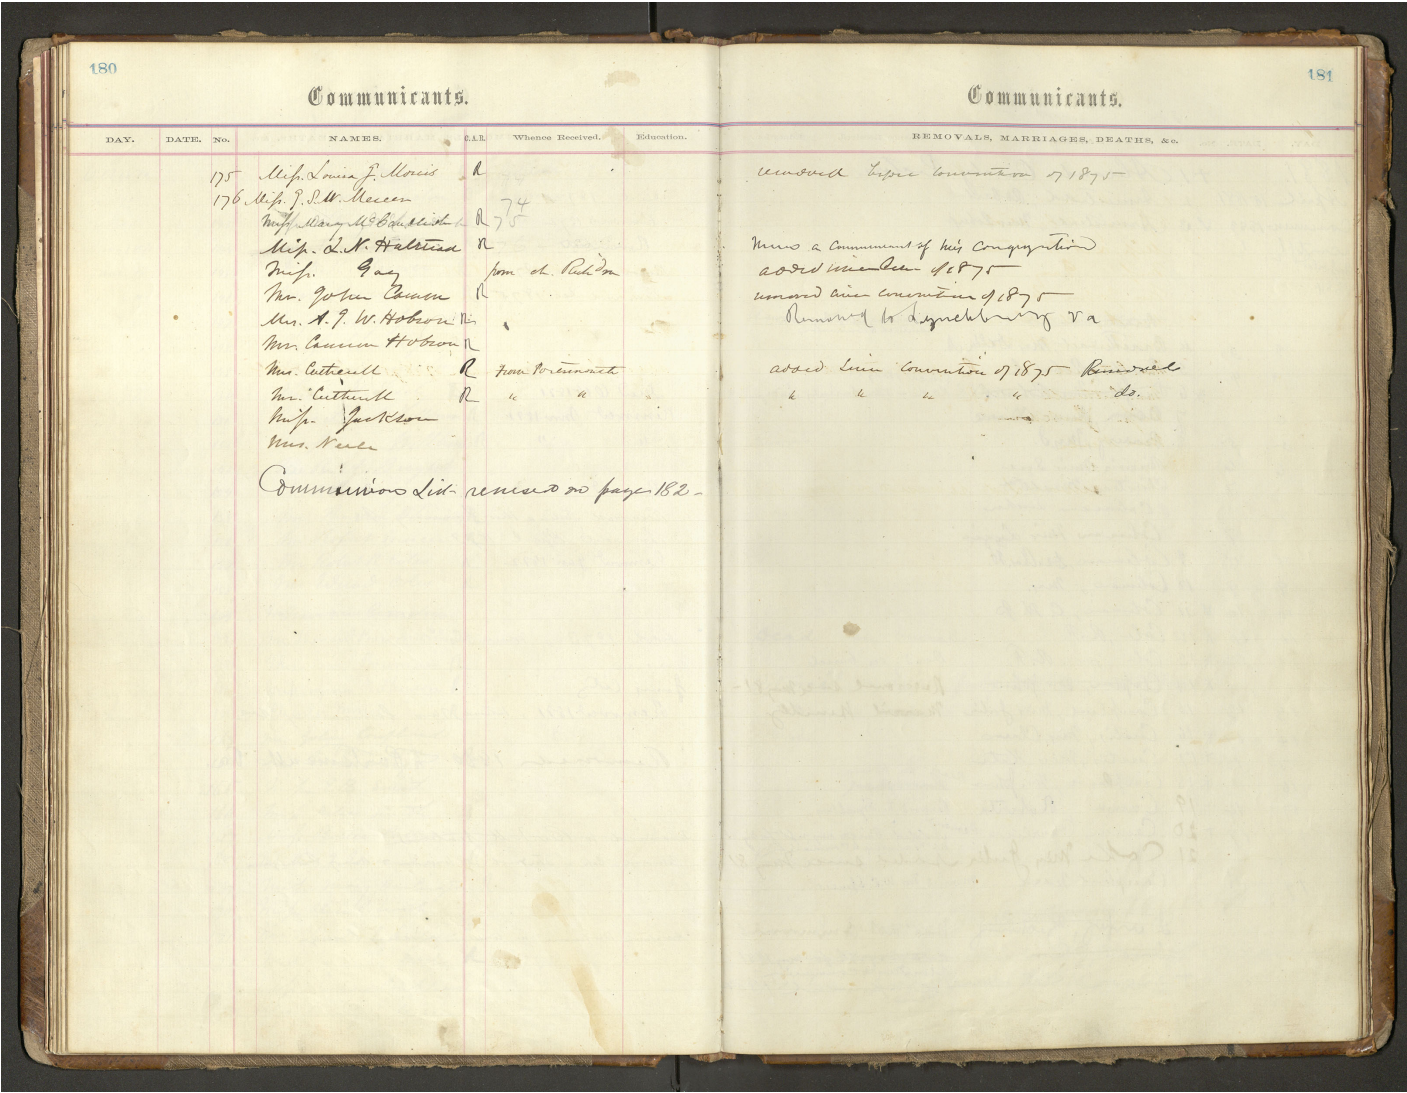 180
Communicants.
DAY. DATE. No. NAMES. C.A.R. Whence Received. Education.
175 Miss. Louisa J. Morris R
176 Miss. J. S. W. Mercer 74
Miss Mary McCandlish R 75
Miss. L. N. Halstead R
Miss. Gay from ch. Richdm
Mr. John Cannon R
Mrs. A. J. W. Hobson
Mrs. Cannon Hobson R
Mrs. Cutherell R From Portsmouth
Mr. Cutherell R " "
Miss. Jackson
Mrs.
Communion List revised on page 182
181
Communicants.
REMOVALS, MARRIAGES, DEATHS, &c.
removed before Convention of 1875
a Communicant of this Congregation
added since of 1875
removed since convention of 1875
Removed to Lynchburg Va
added since Convention of 1875 Removed
" " " " do.